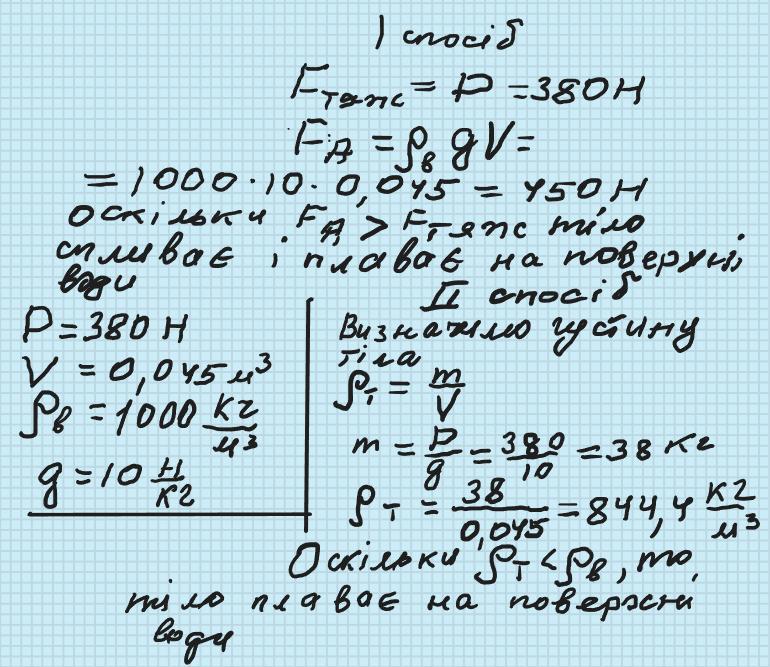 I спосіб
Fтяж = P = 380 Н
FА = ρв g V =
= 1000 · 10 · 0,045 = 450 Н
Оскільки FА > Fтяж тіло
спливає і плаває на поверхні
води
II спосіб
P = 380 Н
V = 0,045 м³
ρв = 1000 кг/м³
g = 10 Н/кг
Визначимо густину
тіла
ρт = m/V
m = P/g = 380/10 = 38 кг
ρт = 38/0,045 = 844,4 кг/м³
Оскільки ρт < ρв, то
тіло плаває на поверхні
води